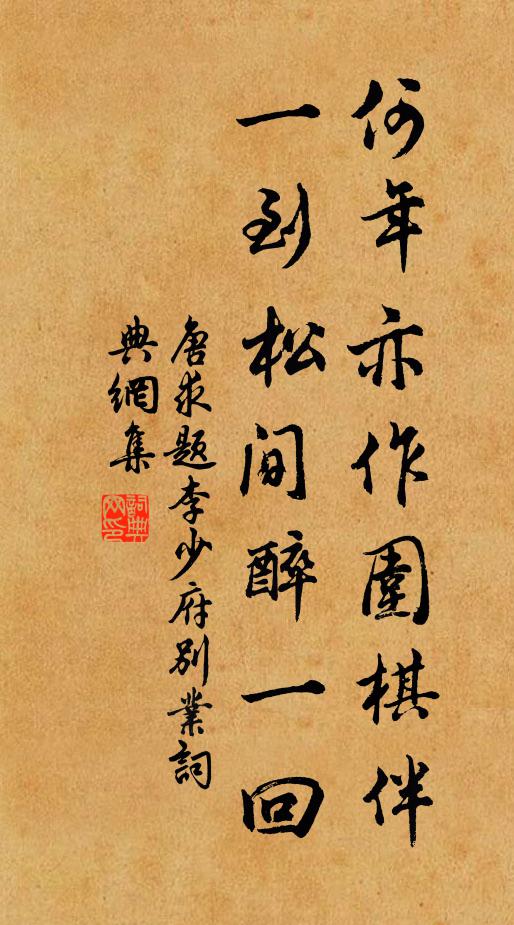 何年亦作圍棋伴
一到松间醉一回
唐求题李少府别業詞
典網集
詞典网印